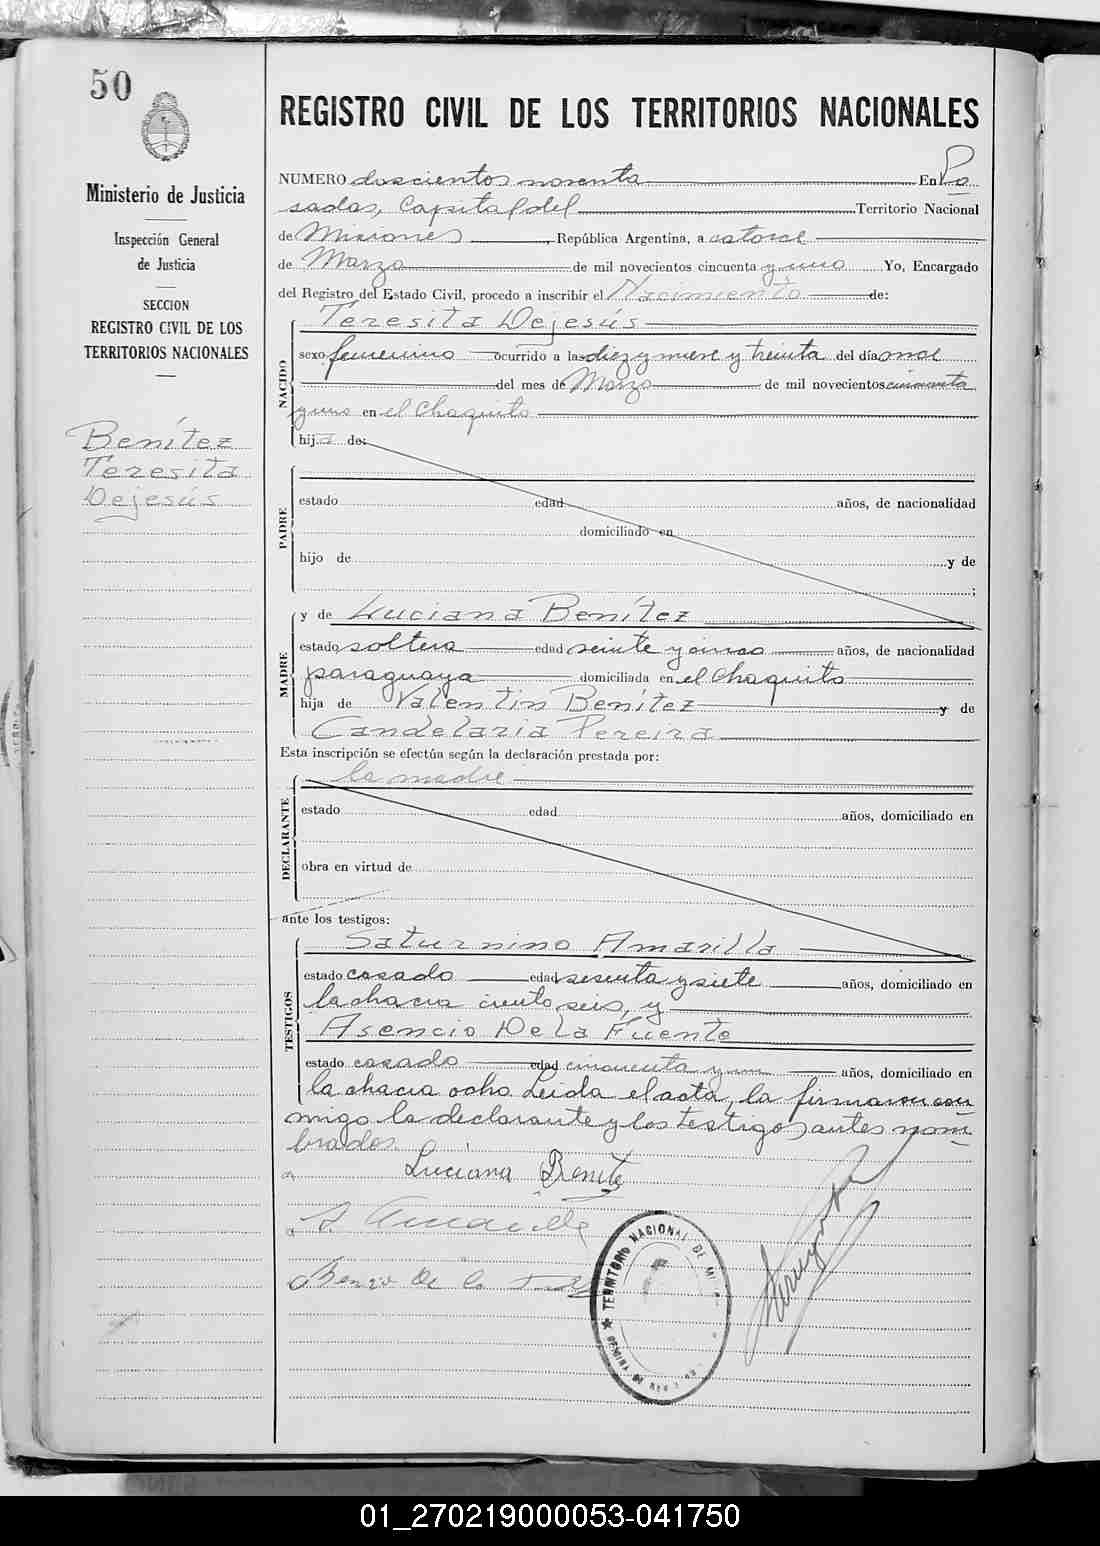 50
Ministerio de Justicia
Inspección General
de Justicia
SECCION
REGISTRO CIVIL DE LOS
TERRITORIOS NACIONALES
Benítez
Teresita
Dejesús
REGISTRO CIVIL DE LOS TERRITORIOS NACIONALES
NUMERO doscientos noventa En Po
sadas, Capital del Territorio Nacional
de Misiones, República Argentina, a catorce
de Marzo de mil novecientos cincuenta y uno Yo, Encargado
del Registro del Estado Civil, procedo a inscribir el Nacimiento de:
NACIDO
Teresita Dejesús
sexo femenino ocurrido a las diez y nueve y treinta del día once
del mes de Marzo de mil novecientos cincuenta
y uno en el Chaquito
hija de:
PADRE
estado edad años, de nacionalidad
domiciliado en
hijo de y de
;
MADRE
y de Luciana Benítez
estado soltera edad veinte y cinco años, de nacionalidad
paraguaya domiciliada en el Chaquito
hija de Valentín Benítez y de
Candelaria Pereira
Esta inscripción se efectúa según la declaración prestada por:
DECLARANTE
la madre
estado edad años, domiciliado en
obra en virtud de
ante los testigos:
TESTIGOS
Saturnino Amarilla
estado casado edad sesenta y siete años, domiciliado en
la chacra ciento seis, y
Asencio De la Fuente
estado casado edad cincuenta y un años, domiciliado en
la chacra ocho. Leida el acta, la firmaron con
migo la declarante y los testigos antes nom
brados.
Luciana Benite
S. Amarilla
De la
TERRITORIO NACIONAL DE
01_270219000053-041750